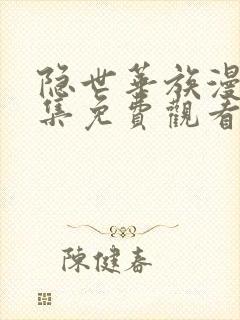 隐世華族漫
集免費觀看
陳健春